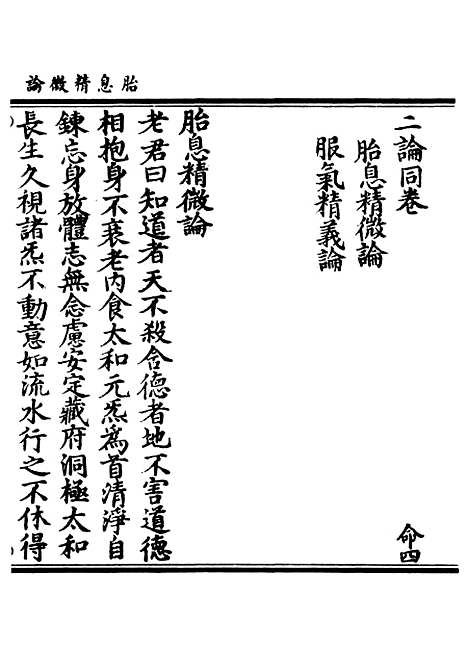 胎息精微論
二論同卷 命四
胎息精微論
服氣精義論
胎息精微論
老君曰知道者天不殺含德者地不害道德
相抱身不衰老内食太和元炁爲首清淨自
鍊忘身放體志無念慮安定藏府洞極太和
長生久視諸炁不動意如流水行之不休得